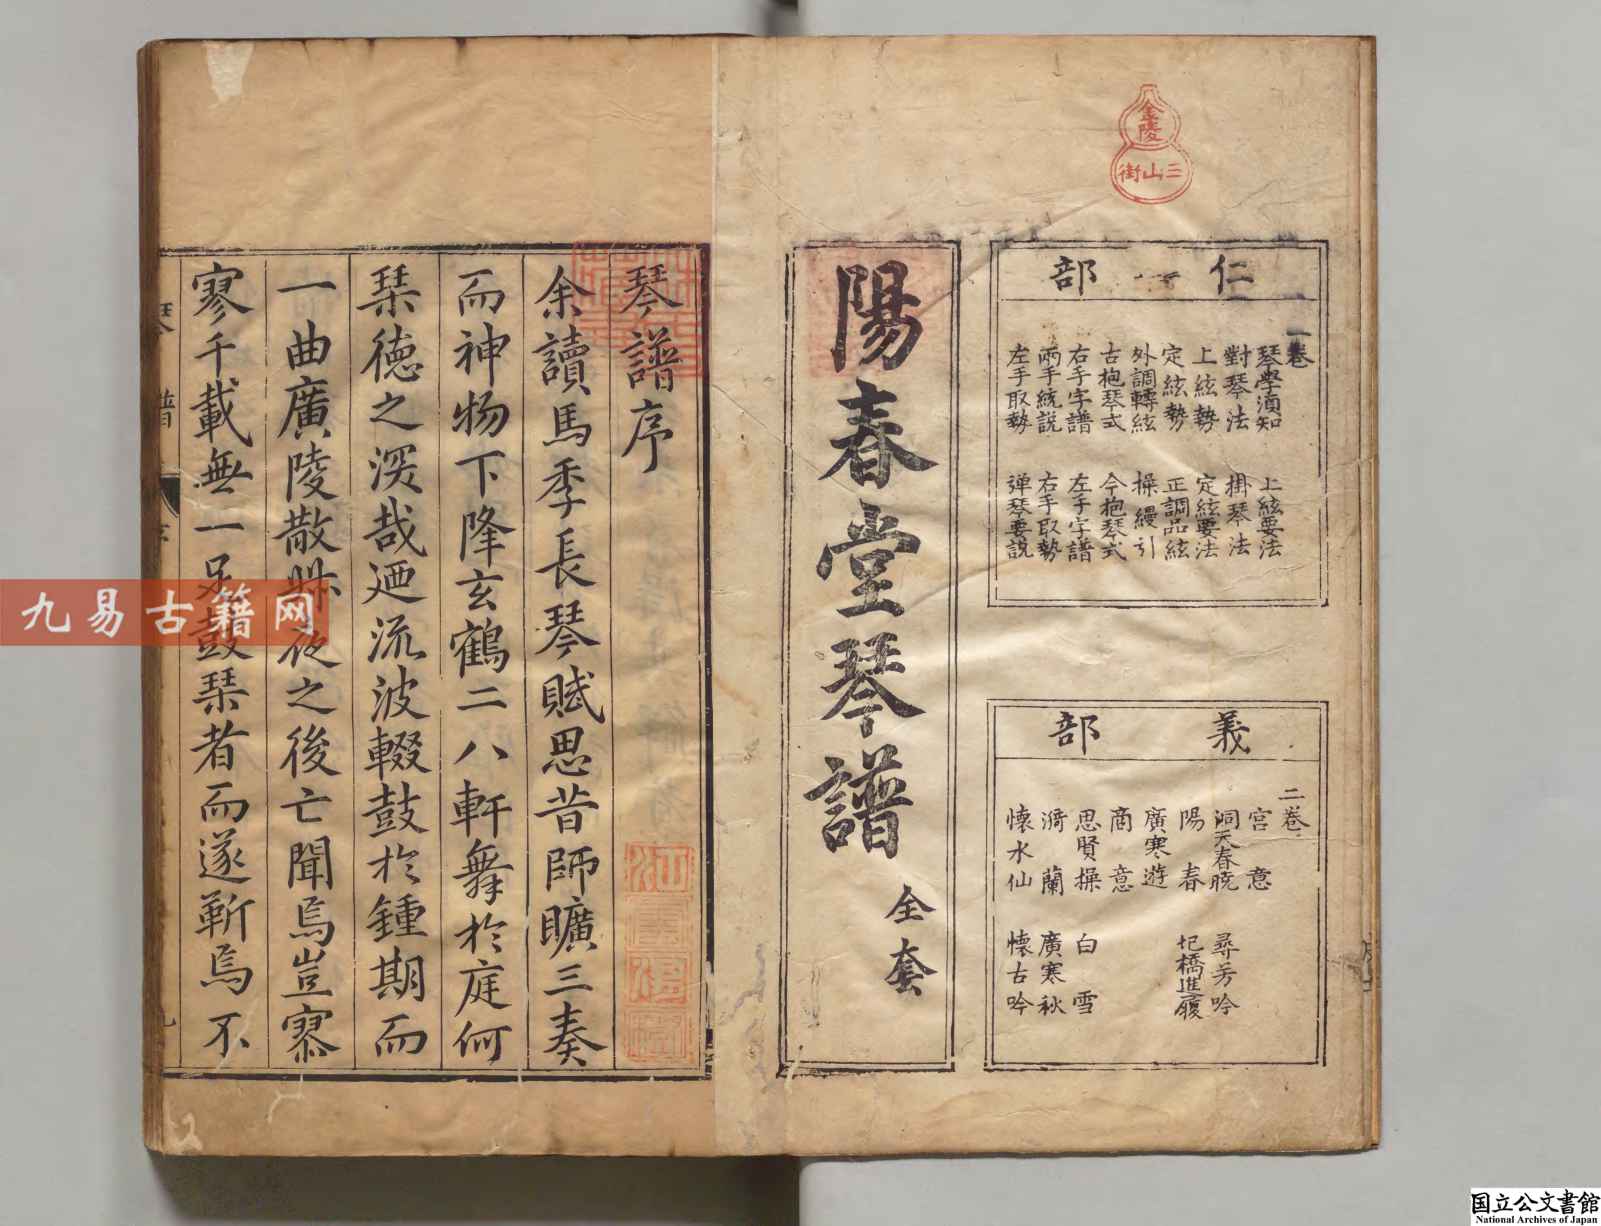 金陵
三山街
仁一部
一卷
琴學須知 上絃要法
對琴法 掛琴法
上絃勢 定絃要法
定絃勢 正調品絃
外調轉絃 操縵引
古抱琴式 今抱琴式
右手字譜 左手字譜
兩手統說 右手取勢
左手取勢 弾琴要說
義部
二卷
宮意
洞天春曉 尋芳吟
陽春 圯橋進履
廣寒遊
商意
思賢操 白雪
漪蘭 廣寒秋
懷水仙 懷古吟
陽春堂琴譜 全套
琴譜序
余讀馬季長琴賦思昔師曠三奏
而神物下降玄鶴二八軒舞於庭何
琹德之深哉廼流波輟鼓於鍾期而
一曲廣陵散 夜之後亡聞焉豈寥
寥千載無一 鼓琹者而遂靳焉不
九易古籍网
国立公文書館
National Archives of Japan